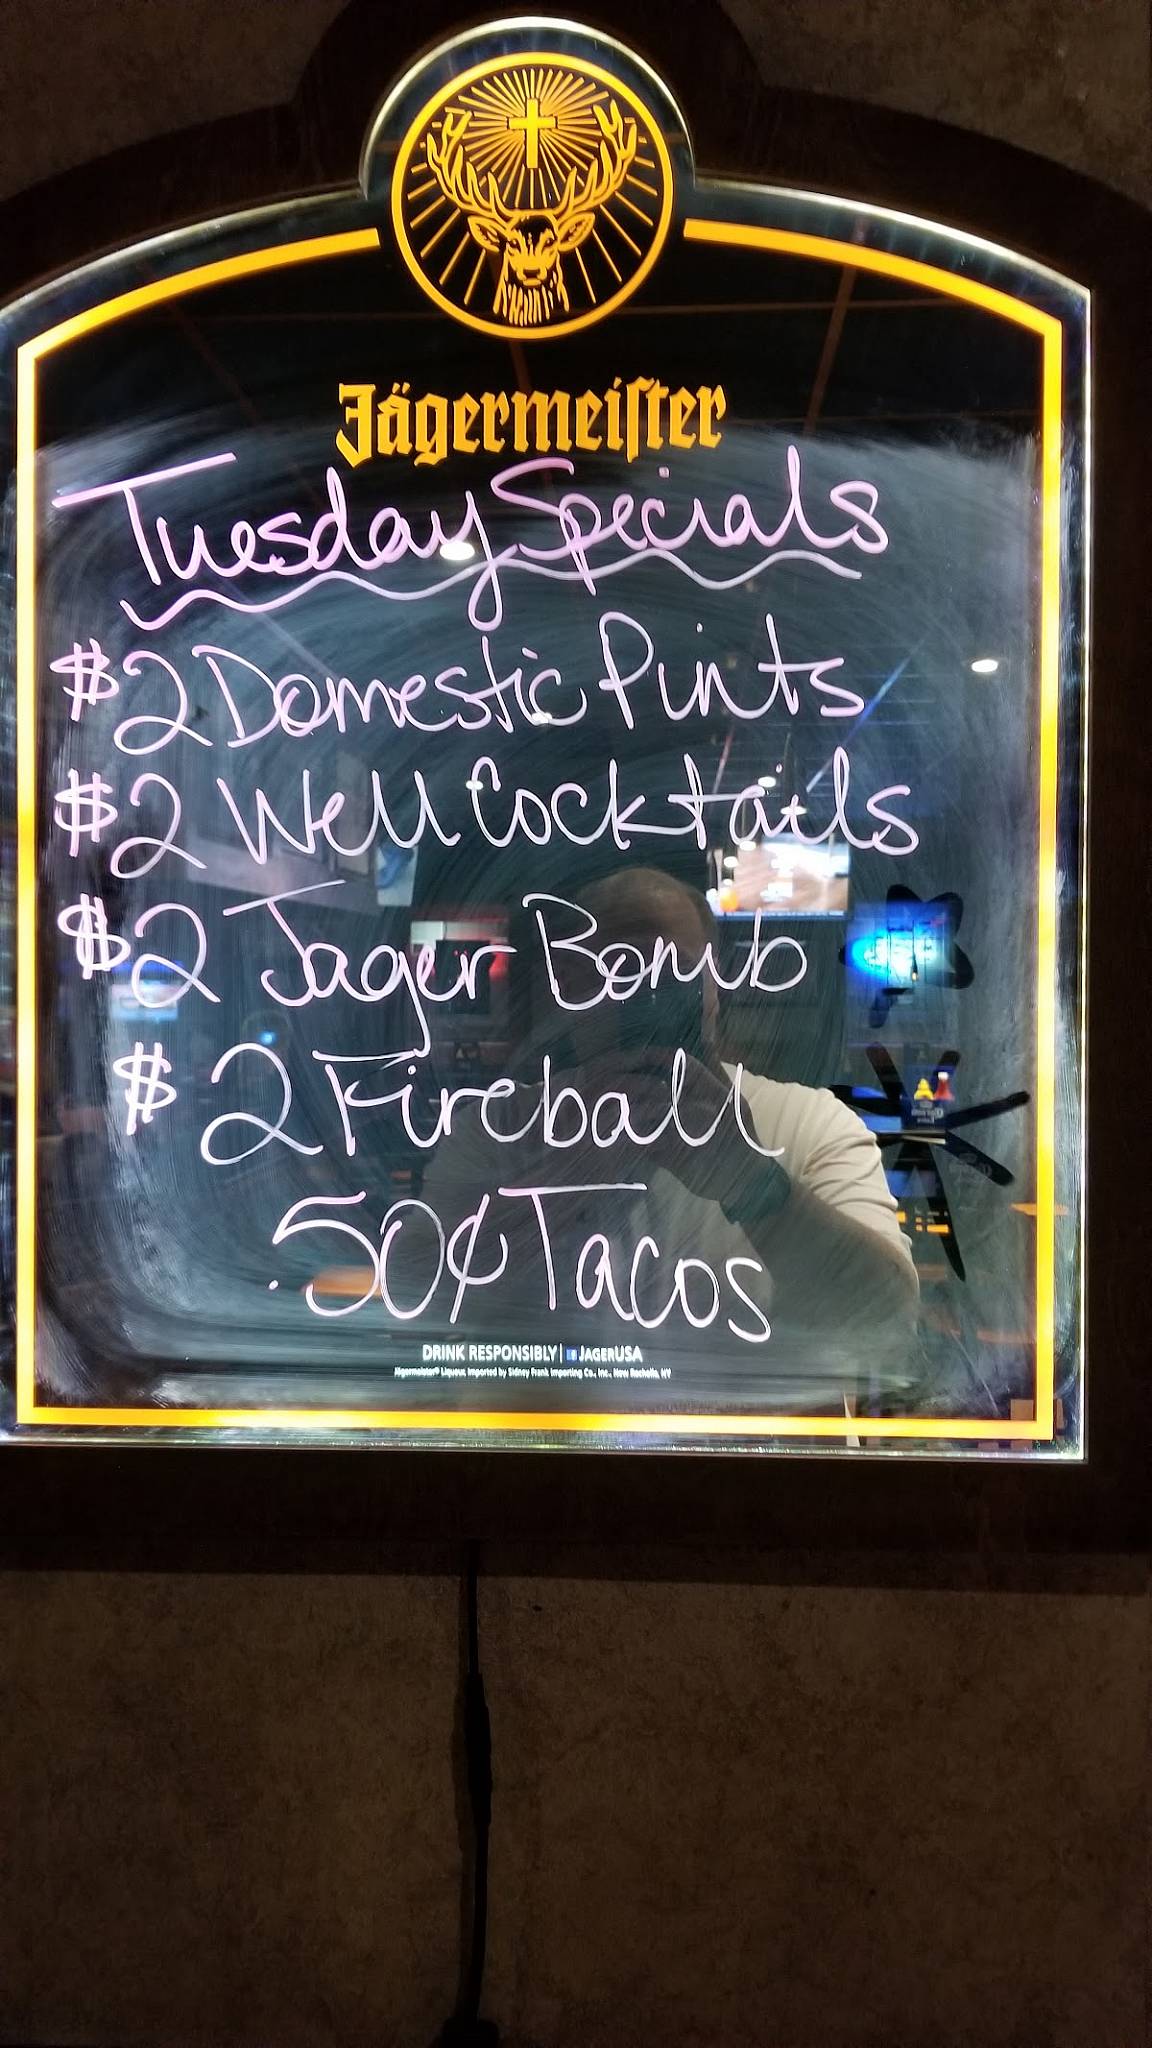 Jägermeiſter
Tuesday Specials
$2 Domestic Pints
$2 Well Cocktails
$2 Jager Bomb
$2 Fireball
.50¢ Tacos
DRINK RESPONSIBLY | JAGERUSA
Jägermeister® Liqueur, Imported by Sidney Frank Importing Co., Inc., New Rochelle, NY